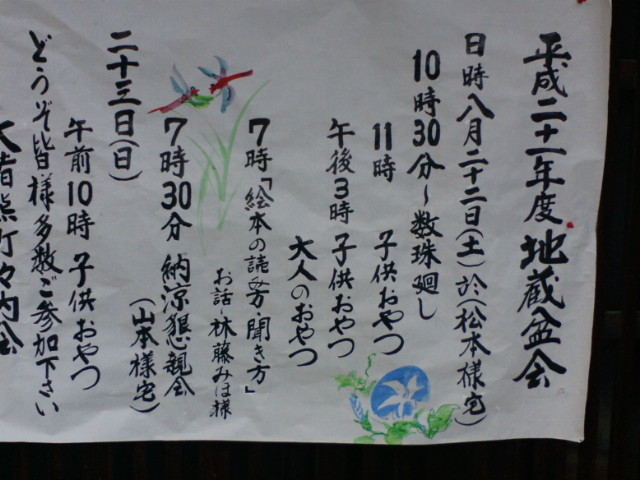 平成二十一年度 地蔵盆会
日時 八月二十二日(土)於(松本様宅)
10時30分〜数珠廻し
11時 子供おやつ
午後3時 子供おやつ
大人のおやつ
7時「絵本の読み方・聞き方」
お話〜林藤みほ様
7時30分 納涼懇親会
(山本様宅)
二十三日(日)
午前10時 子供おやつ
どうぞ皆様多数ご参加下さい
町内会